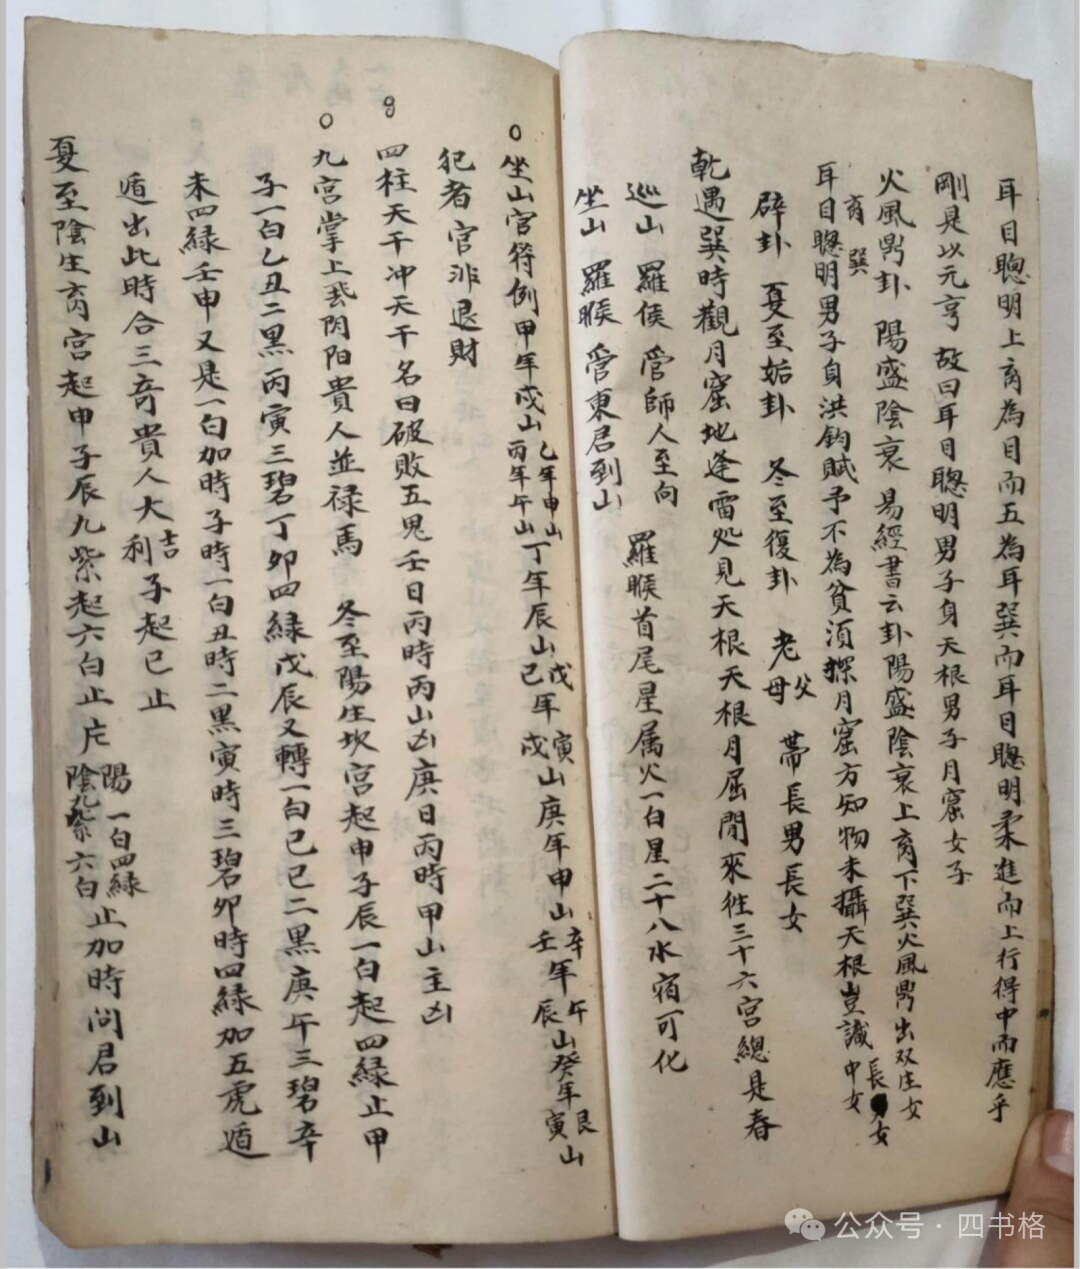 耳目聰明上离為目而五為耳巽而耳目聰明柔進而上行得中而應乎
剛是以元亨 故曰耳目聰明男子身天根男子月窟女子
火風鼎卦 陽盛陰衰 易經書云卦陽盛陰衰上离下巽火風鼎出双庄女
离巽
耳目聰明男子身洪鈞賦予不為貧須探月窟方知物未攝天根豈識中女長女
辟卦 夏至姤卦 冬至復卦 老父母 帶長男長女
乾遇巽時觀月窟地逢雷処見天根天根月屈閒來徃三十六宮總是春
巡山 羅侯 管師人至向 羅睺首尾星属火一白星二十八水宿可化
坐山 羅睺 管東君到山
坐山官符例甲年戍山乙年申山丙年午山丁年辰山戊寅己年戍山庚年申山辛午壬年辰山癸年艮寅山
犯者官非退財
四柱天干冲天干名曰破敗五鬼壬日丙時丙山凶庚日丙時甲山主凶
九宮掌上飛陰阳貴人並禄馬 冬至陽生坎宮起申子辰一白起四緑止甲
子一白乙丑二黒丙寅三碧丁卯四緑戊辰又轉一白己巳二黒庚午三碧辛
未四緑壬申又是一白加時子時一白丑時二黒寅時三碧卯時四緑加五虎遁
遁出此時合三奇貴人大吉利子起巳止
夏至陰生离宮起申子辰九紫起六白止 陽一白四緑 陰九紫六白止加時问君到山
公众号·四书格